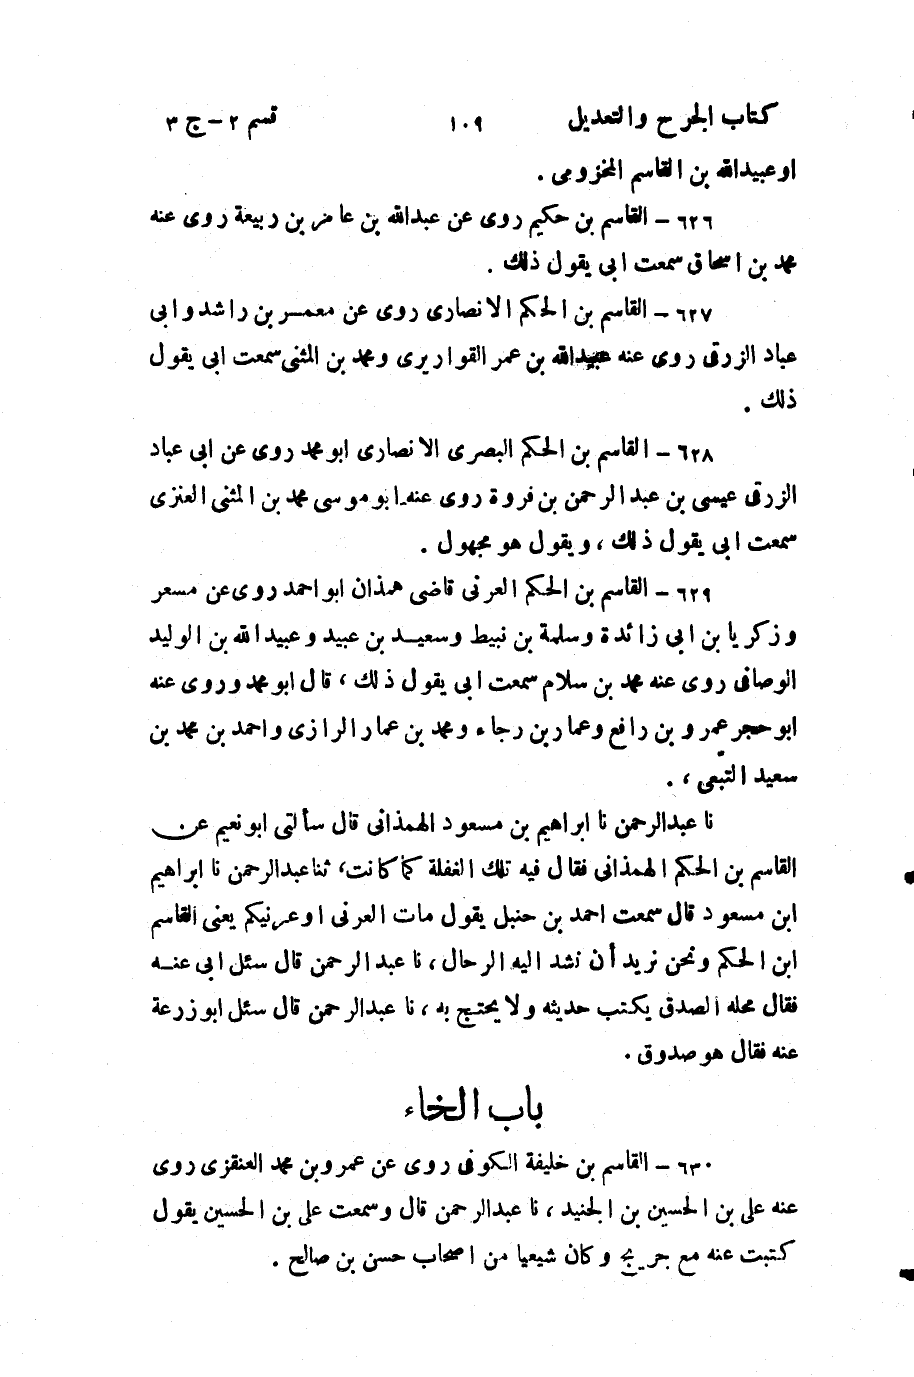 كتاب الجرح والتعديل ١٠٩ قسم ٢ – ج ٣
او عبيدالله بن القاسم المخزومى .
٦٢٦ – القاسم بن حكيم روى عن عبدالله بن عامر بن ربيعة روى عنه
محمد بن اسحاق سمعت ابى يقول ذلك .
٦٢٧ – القاسم بن الحكم الانصارى روى عن معمر بن راشد وابى
عباد الزرقى روى عنه عبيدالله بن عمر القواريرى ومحمد بن المثنى سمعت ابى يقول
ذلك .
٦٢٨ – القاسم بن الحكم البصرى الانصارى ابو محمد روى عن ابى عباد
الزرقى عيسى بن عبد الرحمن بن فروة روى عنه ابو موسى محمد بن المثنى العنزى
سمعت ابى يقول ذلك ، ويقول هو مجهول .
٦٢٩ – القاسم بن الحكم العرنى قاضى همذان ابو احمد روى عن مسعر
وزكريا بن ابى زائدة وسلمة بن نبيط وسعيد بن عبيد وعبيد الله بن الوليد
الوصافى روى عنه محمد بن سلام سمعت ابى يقول ذلك ، قال ابو محمد وروى عنه
ابو حجر عمرو بن رافع وعمار بن رجاء ومحمد بن عمار الرازى واحمد بن محمد بن
سعيد التبعى ، .
نا عبدالرحمن نا ابراهيم بن مسعود الهمذانى قال سألنى ابو نعيم عن
القاسم بن الحكم الهمذانى فقال فيه تلك الغفلة كما كانت ، ثنا عبدالرحمن نا ابراهيم
ابن مسعود قال سمعت احمد بن حنبل يقول مات العرنى او عرنيكم يعنى القاسم
ابن الحكم ونحن نريد أن نشد اليه الرحال ، نا عبد الرحمن قال سئل ابى عنه
فقال محله الصدق يكتب حديثه ولا يحتج به ، نا عبدالرحمن قال سئل ابو زرعة
عنه فقال هو صدوق .
باب الخاء
٦٣٠ – القاسم بن خليفة الكوفى روى عن عمرو بن محمد العنقزى روى
عنه على بن الحسين بن الجنيد ، نا عبدالرحمن قال وسمعت على بن الحسين يقول
كتبت عنه مع جريج وكان شيعيا من اصحاب حسن بن صالح .